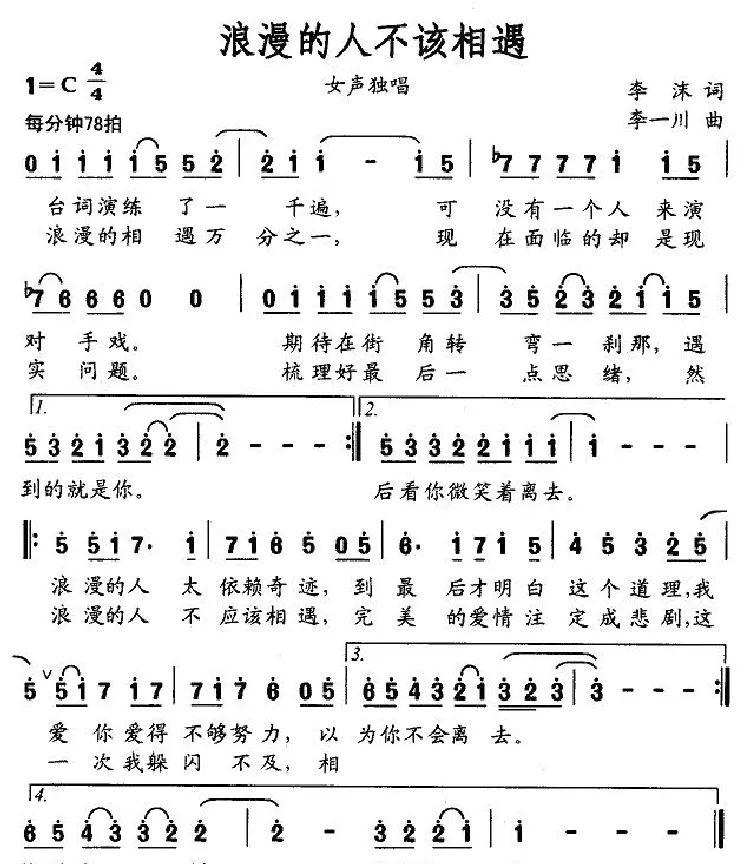 浪漫的人不该相遇
1=C 4/4
女声独唱
李 沫 词
每分钟78拍
李一川 曲
0 1 1 1 1 5 5 2 | 2 1 1 - 1 5 | ♭7 7 7 7 1 1 5
台词演练 了一 千遍, 可 没有一个人 来演
浪漫的相 遇万 分之一, 现 在面临的却 是现
♭7 6 6 6 0 0 | 0 1 1 1 1 5 5 3 | 3 5 2 3 2 1 1 5
对 手戏。 期待在街 角转 弯一 刹那, 遇
实 问题。 梳理好最 后一 点思 绪, 然
1. 2.
5 3 2 1 3 2 2 | 2 - - - :| 5 3 3 2 2 1 1 1 | 1 - - - |
到的就是你。 后看你微笑着离去。
|: 5 5 1 7· 1 | 7 1 6 5 0 5 | 6· 1 7 1 5 | 4 5 3 2 5
浪漫的人 太 依赖奇迹, 到 最 后才明白 这个道理,我
浪漫的人 不 应该相遇, 完 美 的爱情注 定成悲剧,这
3.
5 ∨ 5 1 7 1 7 | 7 1 7 6 0 5 | 6 5 4 3 2 1 3 2 3 | 3 - - - :|
爱 你 爱得 不够努力, 以 为你不会离 去。
一 次我躲 闪 不及, 相
4.
6 5 4 3 3 2 2 | 2 - 3 2 2 1 | 1 - - - |